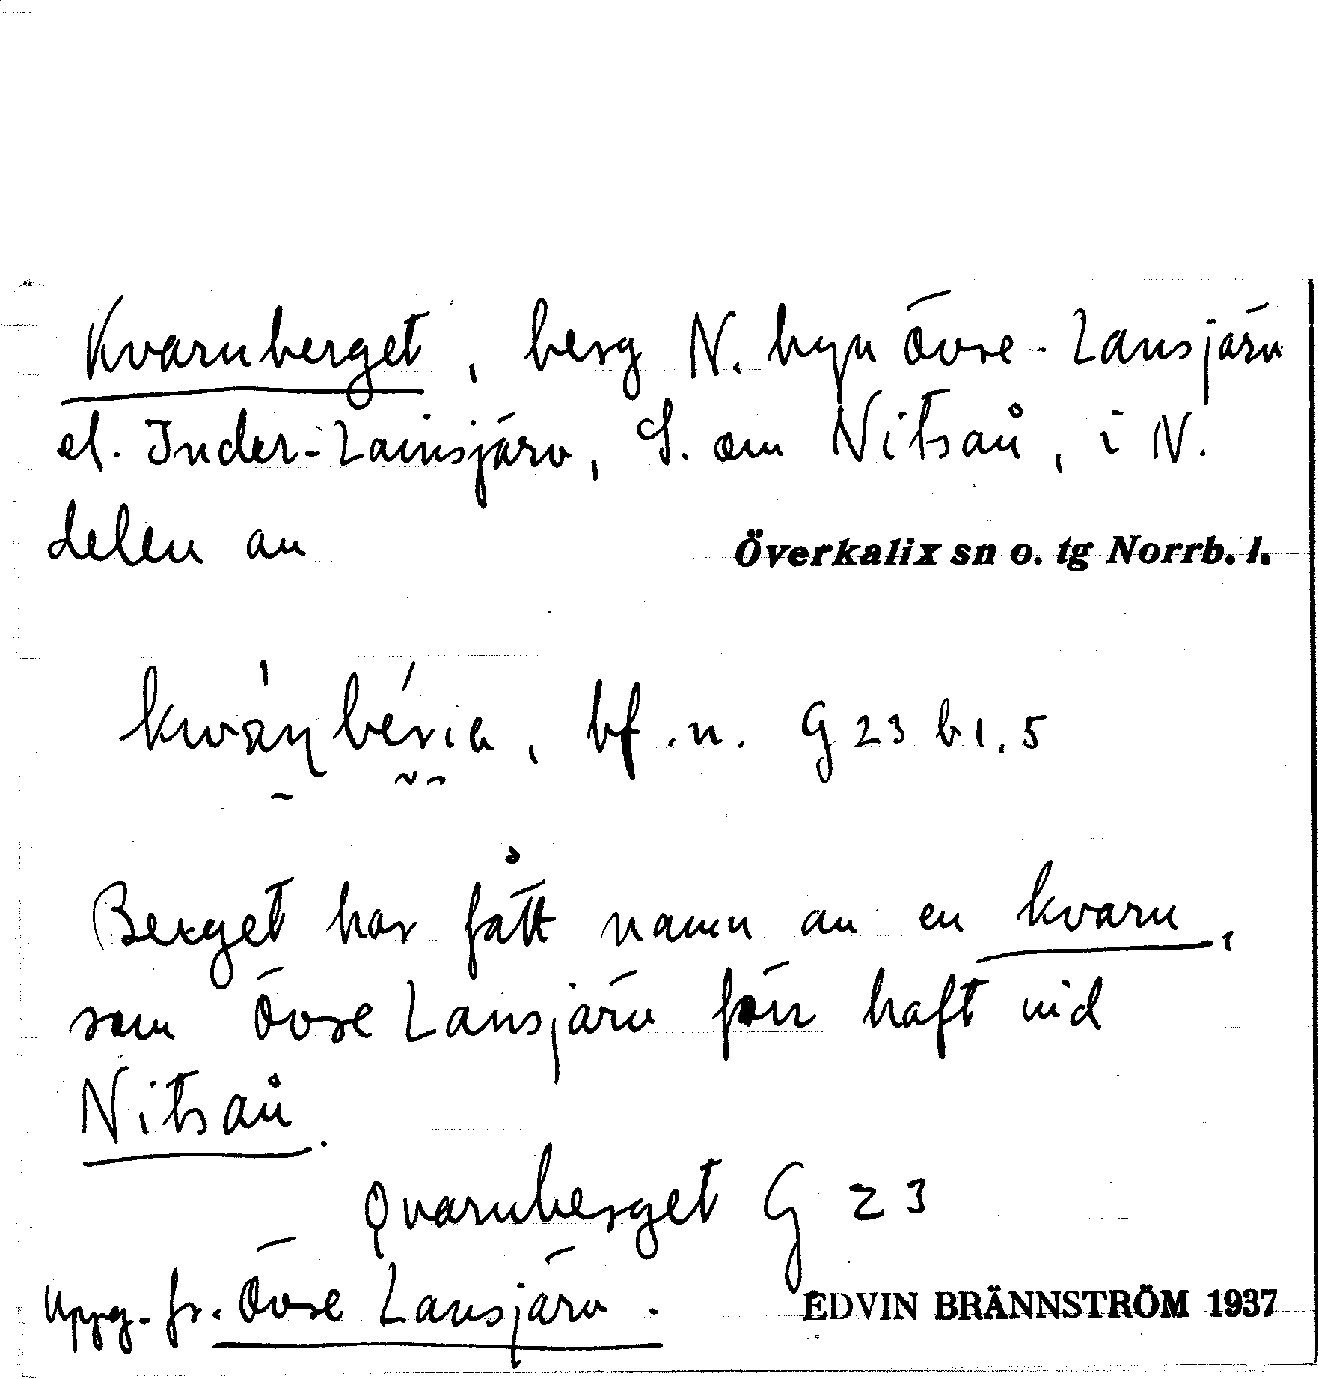 Kvarnberget, berg N. byn Övre-Lansjärv
el. Inder-Lansjärv, S. om Nitsaŭ, i N.
delen av Överkalix sn o. tg Norrb. l.
bf. n. G 23 b 1, 5
Berget har fått namn av en kvarn,
som Övre Lansjärv förr haft vid
Nitsaŭ.
Qvarnberget G 23
Uppg. fr. Övre Lansjärv. EDVIN BRÄNNSTRÖM 1937